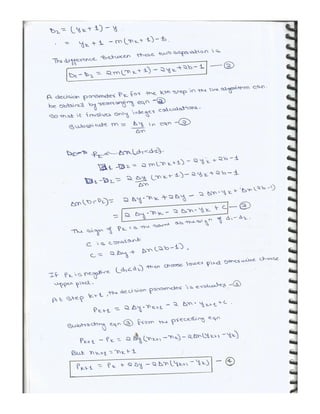 D2 = (yk+1) - y
= yk+1 - m(xk+1) - B.
The difference between these two separation is
D1-D2 = 2m(xk+1) - 2yk+2b-1 —②
A decision parameter Pk for the kth step in the line algorithm can
be obtained by rearranging eqn -②
so that it involves only integer calculations.
Substitute m = Δy/Δx in eqn -②
Pk = Δx(d1-d2).
D1-D2 = 2m(xk+1) - 2yk+2b-1
D1-D2 = 2 Δy/Δx (xk+1) - 2yk+2b-1
Δx(D1-D2) = 2Δy·xk + 2Δy - 2Δx·yk + Δx(2b-1)
= 2Δy·xk - 2Δx·yk + C —③
The sign of Pk is the same as the sign of d1-d2.
C is constant
C = 2Δy + Δx(2b-1).
If Pk is negative (d1<d2) then choose lower pixel otherwise choose
upper pixel.
At step k+1, the decision parameter is evaluates -③
Pk+1 = 2Δy·xk+1 - 2Δx·yk+1 + C.
Subtracting eqn ③ from the preceding eqn
Pk+1 - Pk = 2Δy(xk+1 - xk) - 2Δx(yk+1 - yk)
But xk+1 = xk+1
Pk+1 = Pk + 2Δy - 2Δx(yk+1 - yk) —④